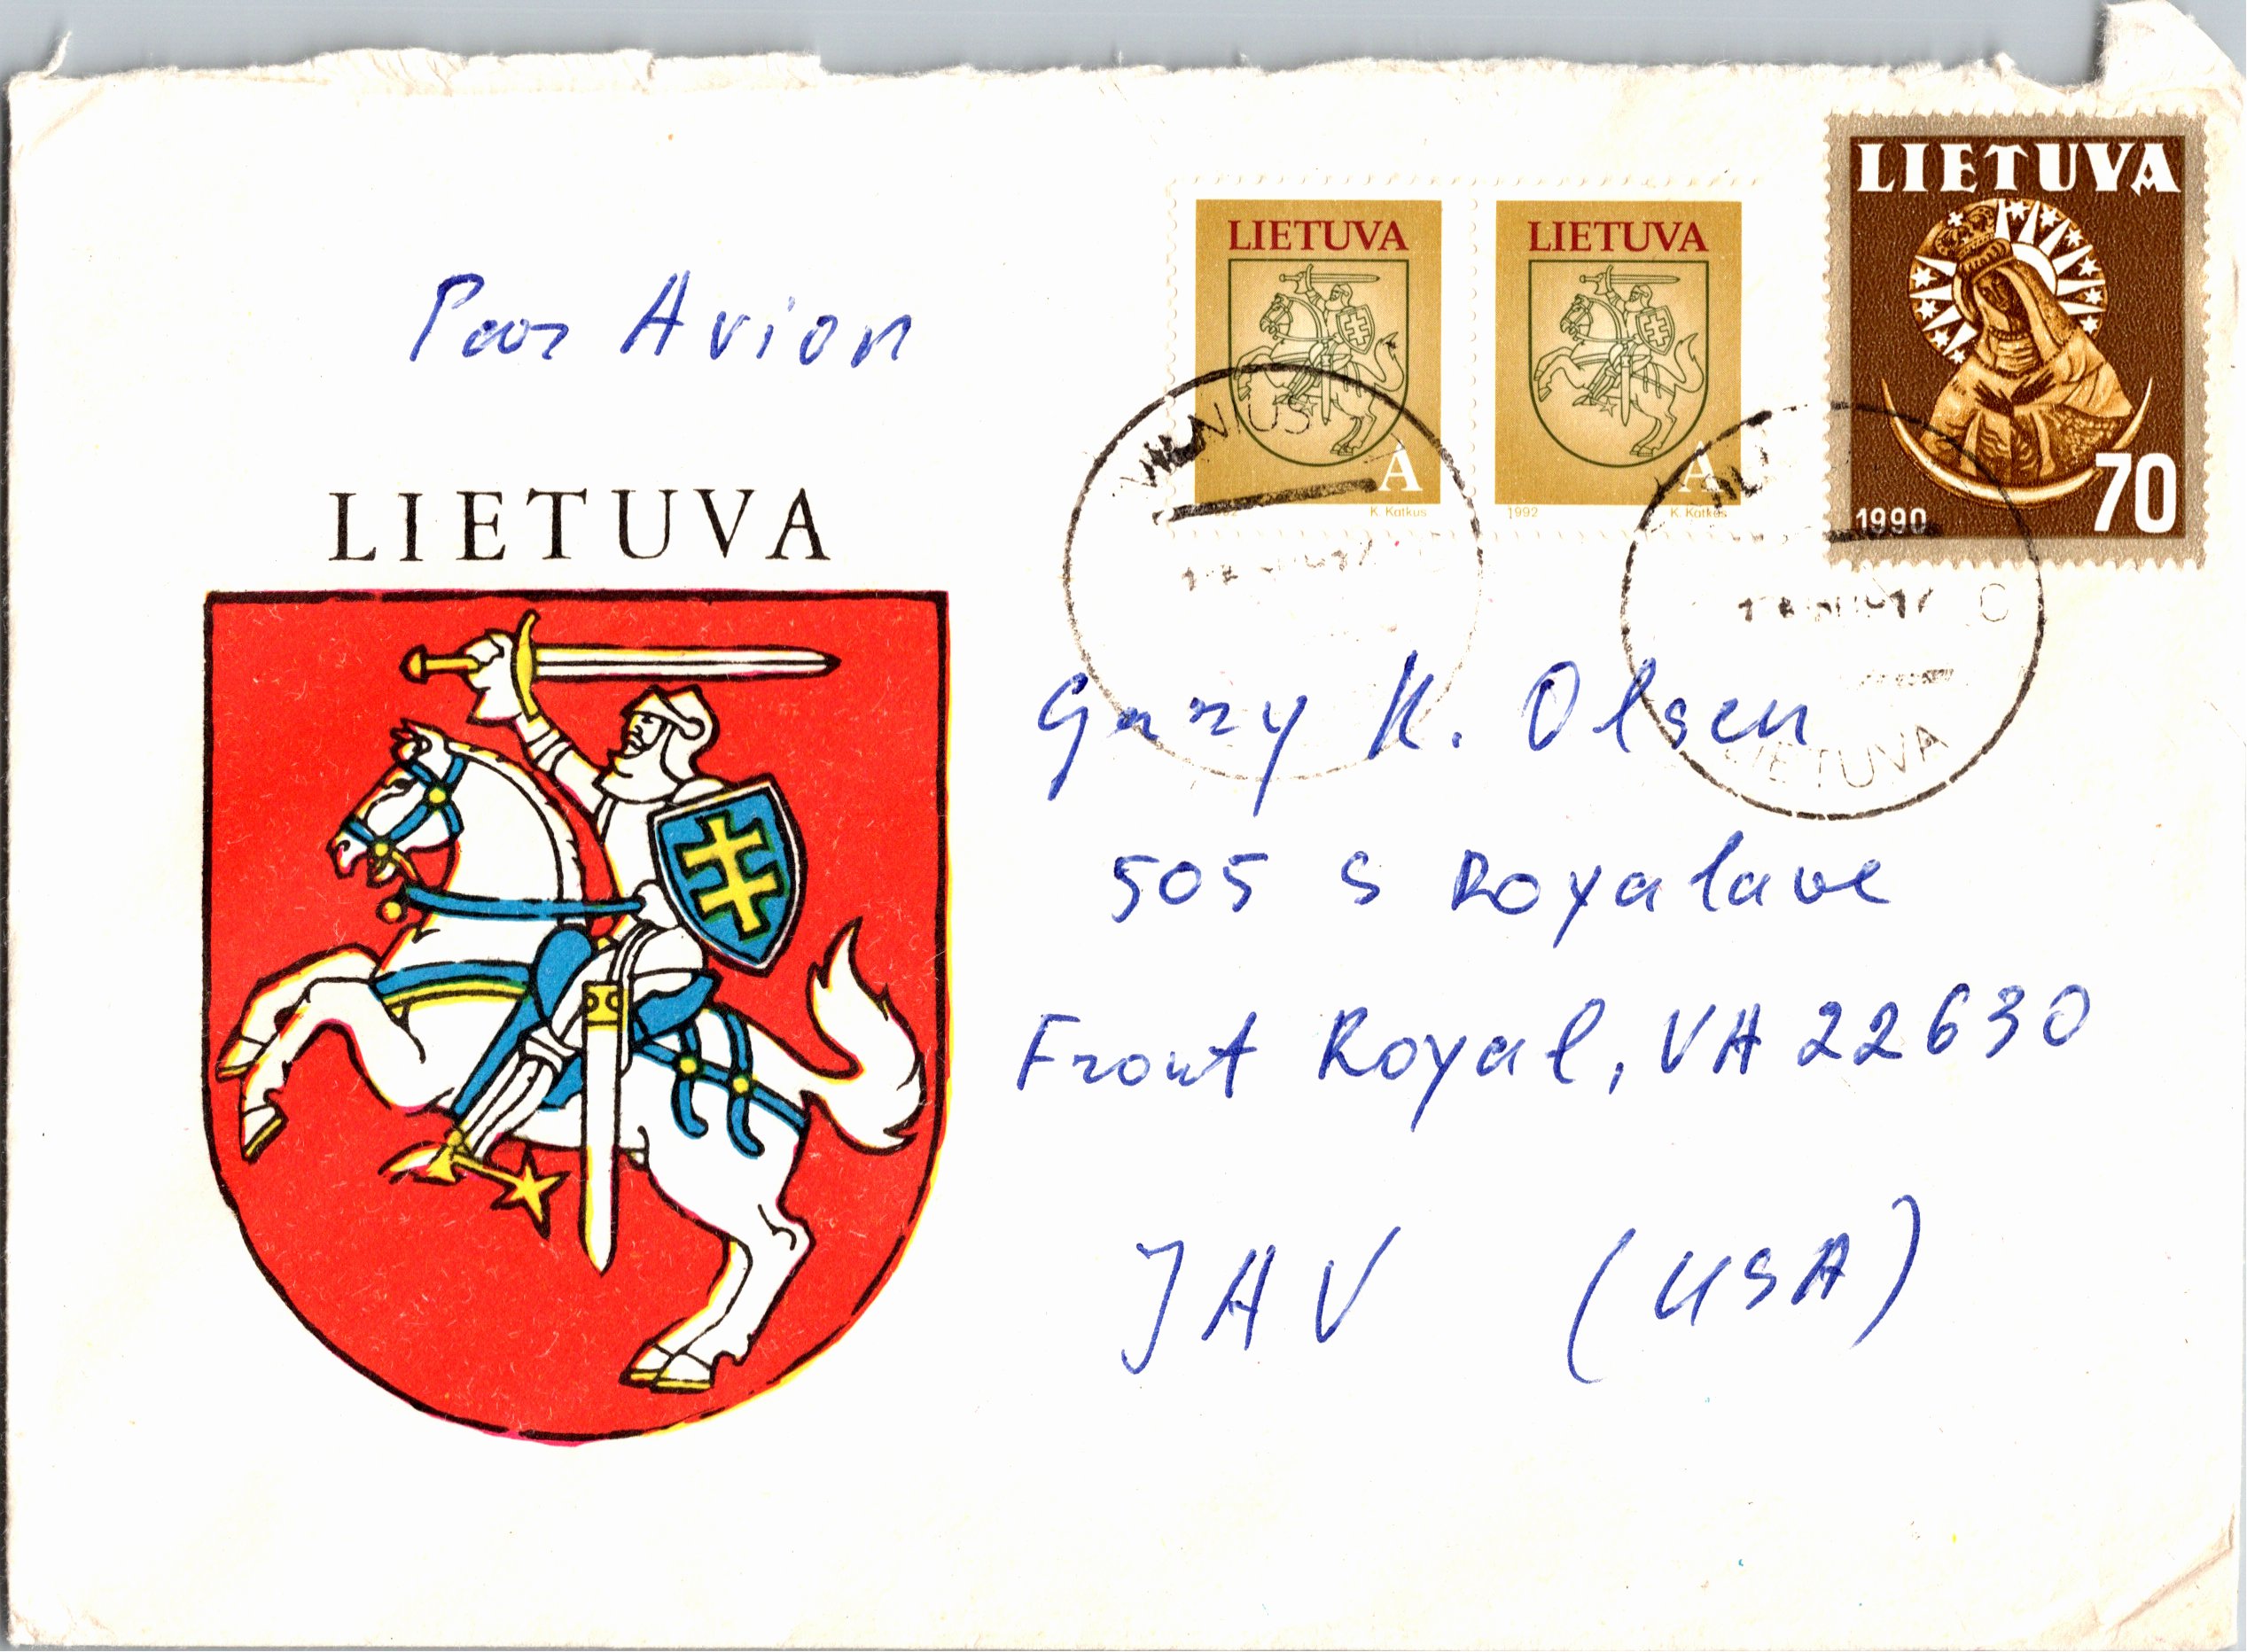 Par Avion
LIETUVA
LIETUVA
A
1992
K. Katkus
LIETUVA
A
1992
K. Katkus
LIETUVA
1990
70
VILNIUS
LIETUVA
Gary K. Olsen
505 S Royalave
Front Royal, VA 22630
JAV (USA)